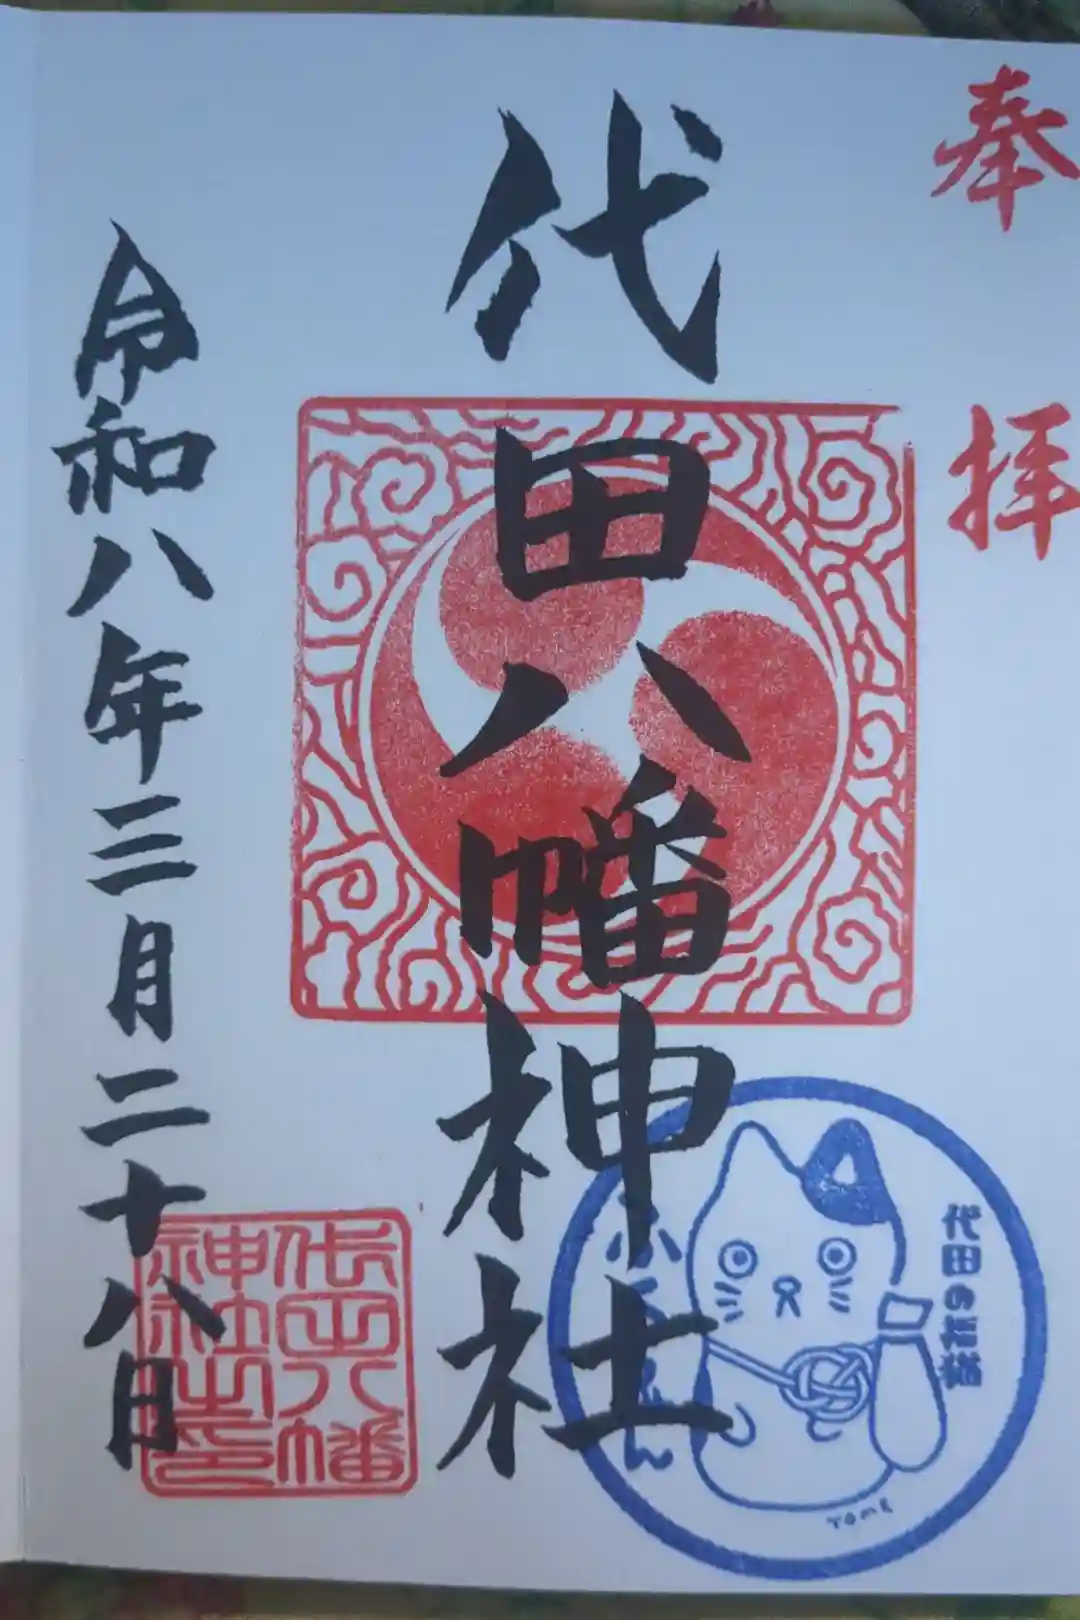 奉拝
代田八幡神社
令和八年三月二十八日
代田八幡
神社之印
TOME